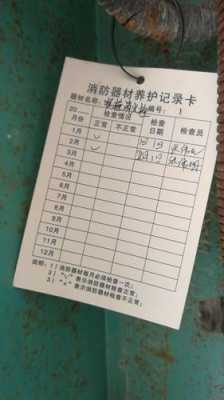 消防器材养护记录卡
器材名称: 编号: 1
20 检查情况 检查日期 检查员
月份 正常 不正常
1月 ✓
2月
3月 ✓
4月
5月
6月
7月
8月
9月
10月
11月
12月
说明: 1) 消防器材每月必须检查一次;
2) "✓" 表示消防器材检查正常;
3) "×" 表示消防器材检查不正常;